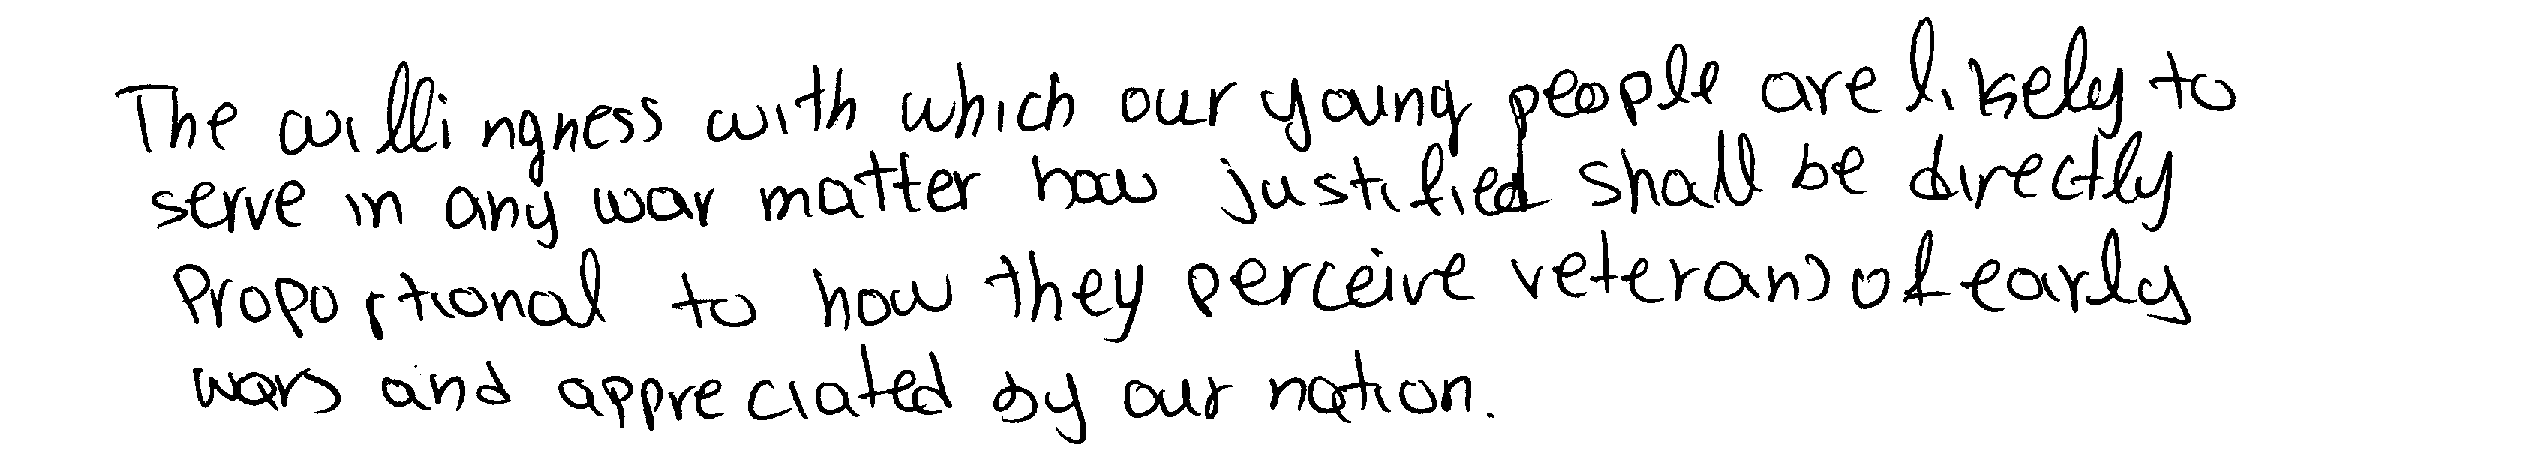 The willingness with which our young people are likely to
serve in any war matter how justified shall be directly
Proportional to how they perceive veterans of early
wars and appreciated by our nation.